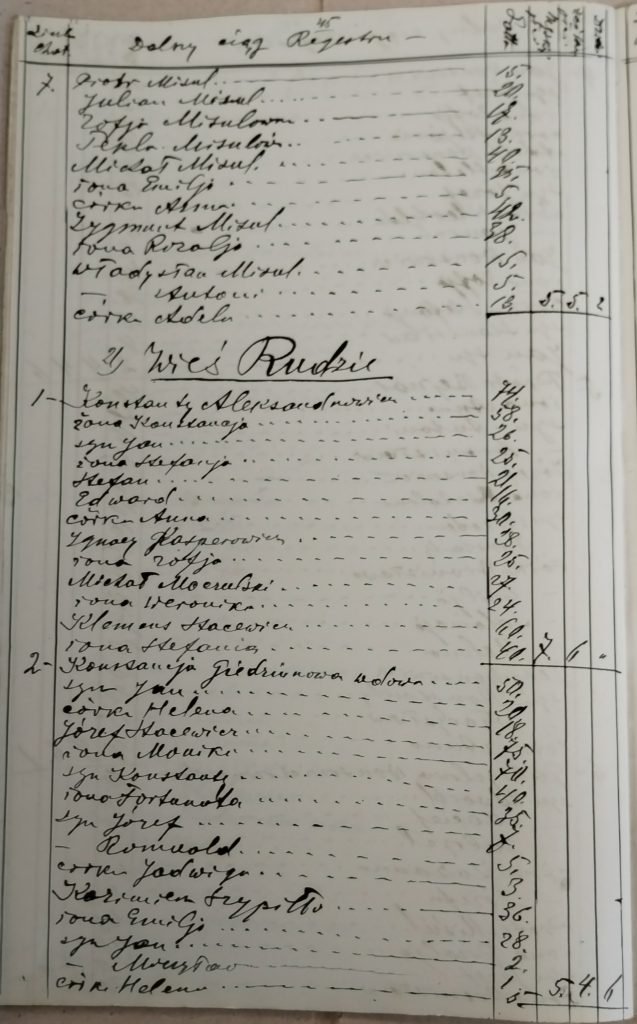 45
Dalszy ciąg Regestru -
Lata
7. Piotr Misul 15.
Julian Misul 20.
Zofja Misulowna 18.
Tekla Misulów 13.
Michał Misul. 40.
żona Emilja 35.
córka Anna 5.
Zygmunt Misul. 42.
żona Rozalja 38.
Władysław Misul. 15.
— Antoni 5.
córka Adela 13. 5. 5. 2
2) Wieś Rudzie
1- Konstanty Aleksandrowicz 74.
żona Konstancja 58.
syn Jan 26.
żona Stefanja 25.
Stefan 21.
Edward
córka Anna
Ignacy Kasperowicz 28.
żona Zofja 25.
Michał 27.
żona Weronika 24.
Klemens Stacewicz 60.
żona Stefania 40. 7. 6 "
2- Konstancja wdowa 50.
syn Jan 20.
córka Helena 18.
Józef Stacewicz 75.
żona Monika 70.
syn Konstanty 40.
żona Fortunata 35.
syn Józef 7.
— Romuald. 5.
córka Jadwiga 3.
Kazimierz Szypiłło 36.
żona Emilja 28.
syn Jan 2.
— 1
córka Helena 5 5. 4. 6